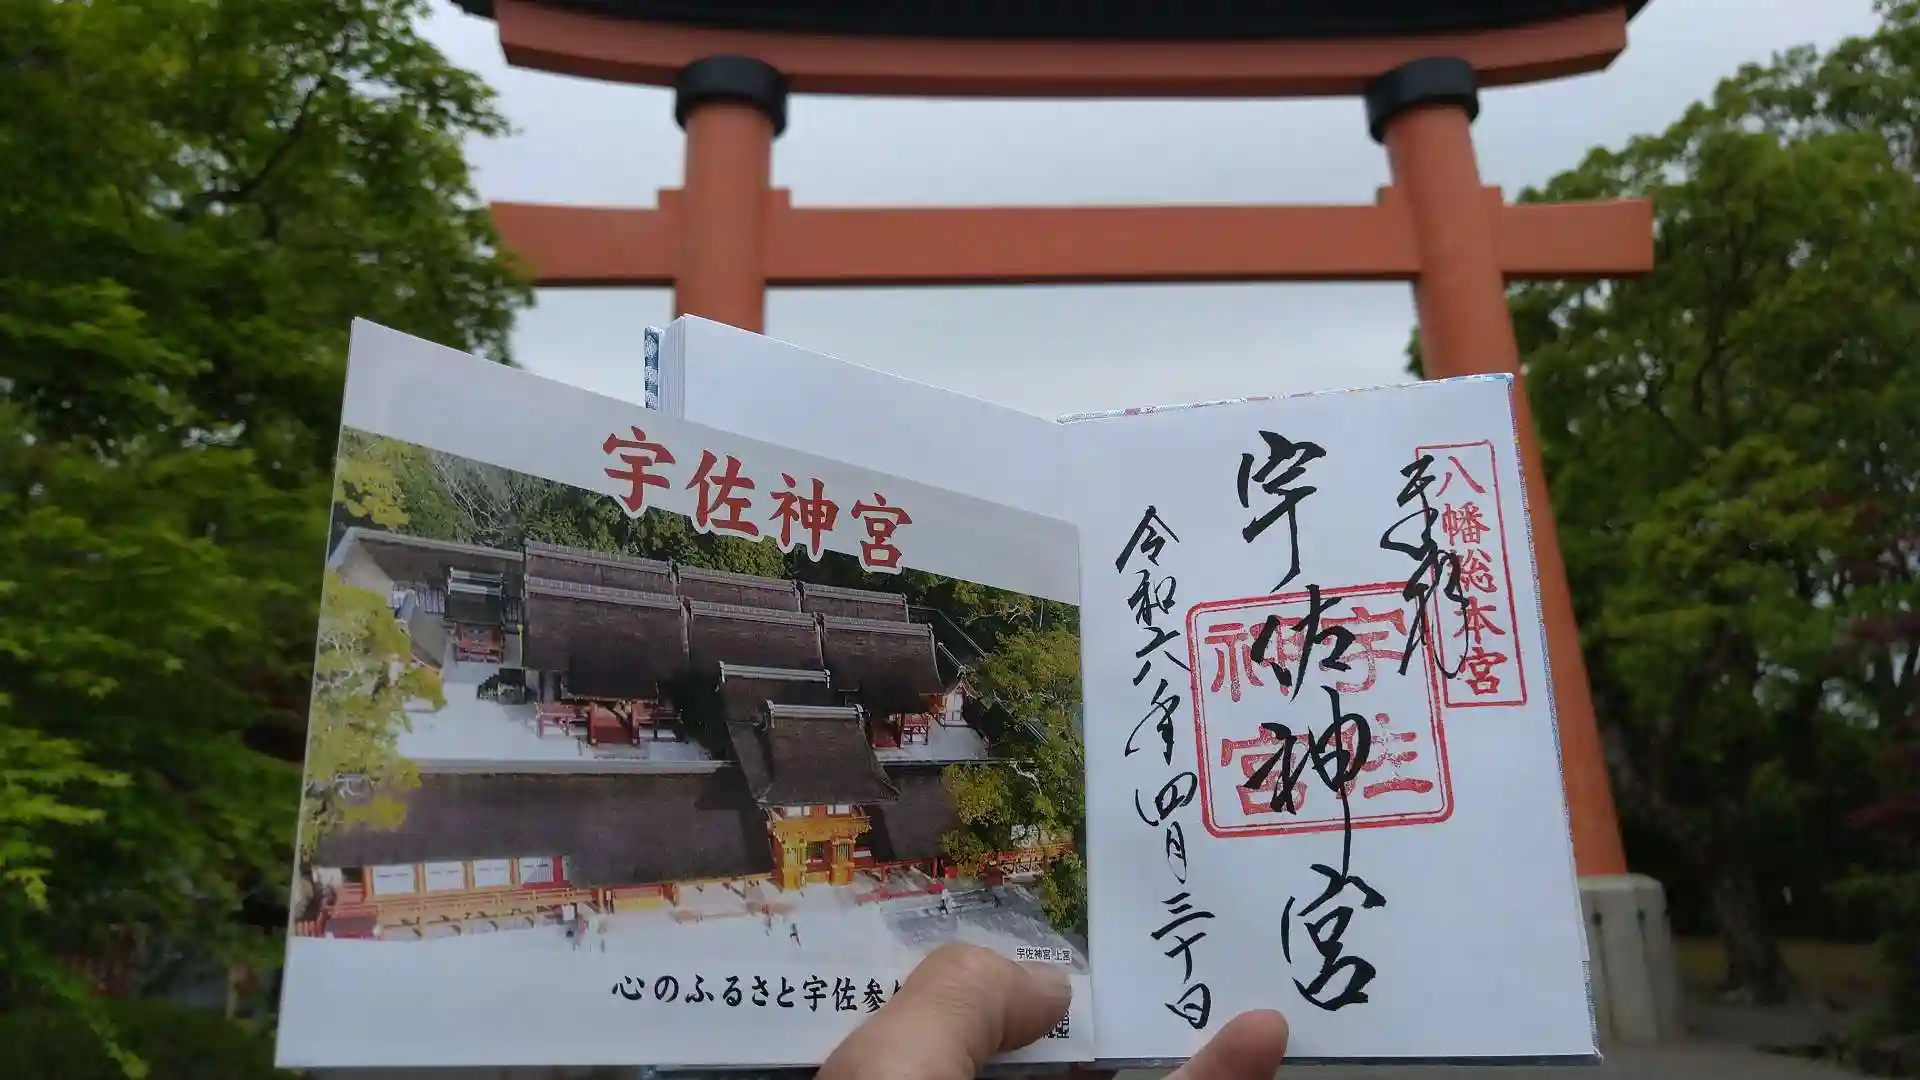 宇佐神宮
宇佐神宮 上宮
心のふるさと宇佐参
八幡総本宮
奉拝
宇佐神宮
宇佐神宮
令和六年四月三十日